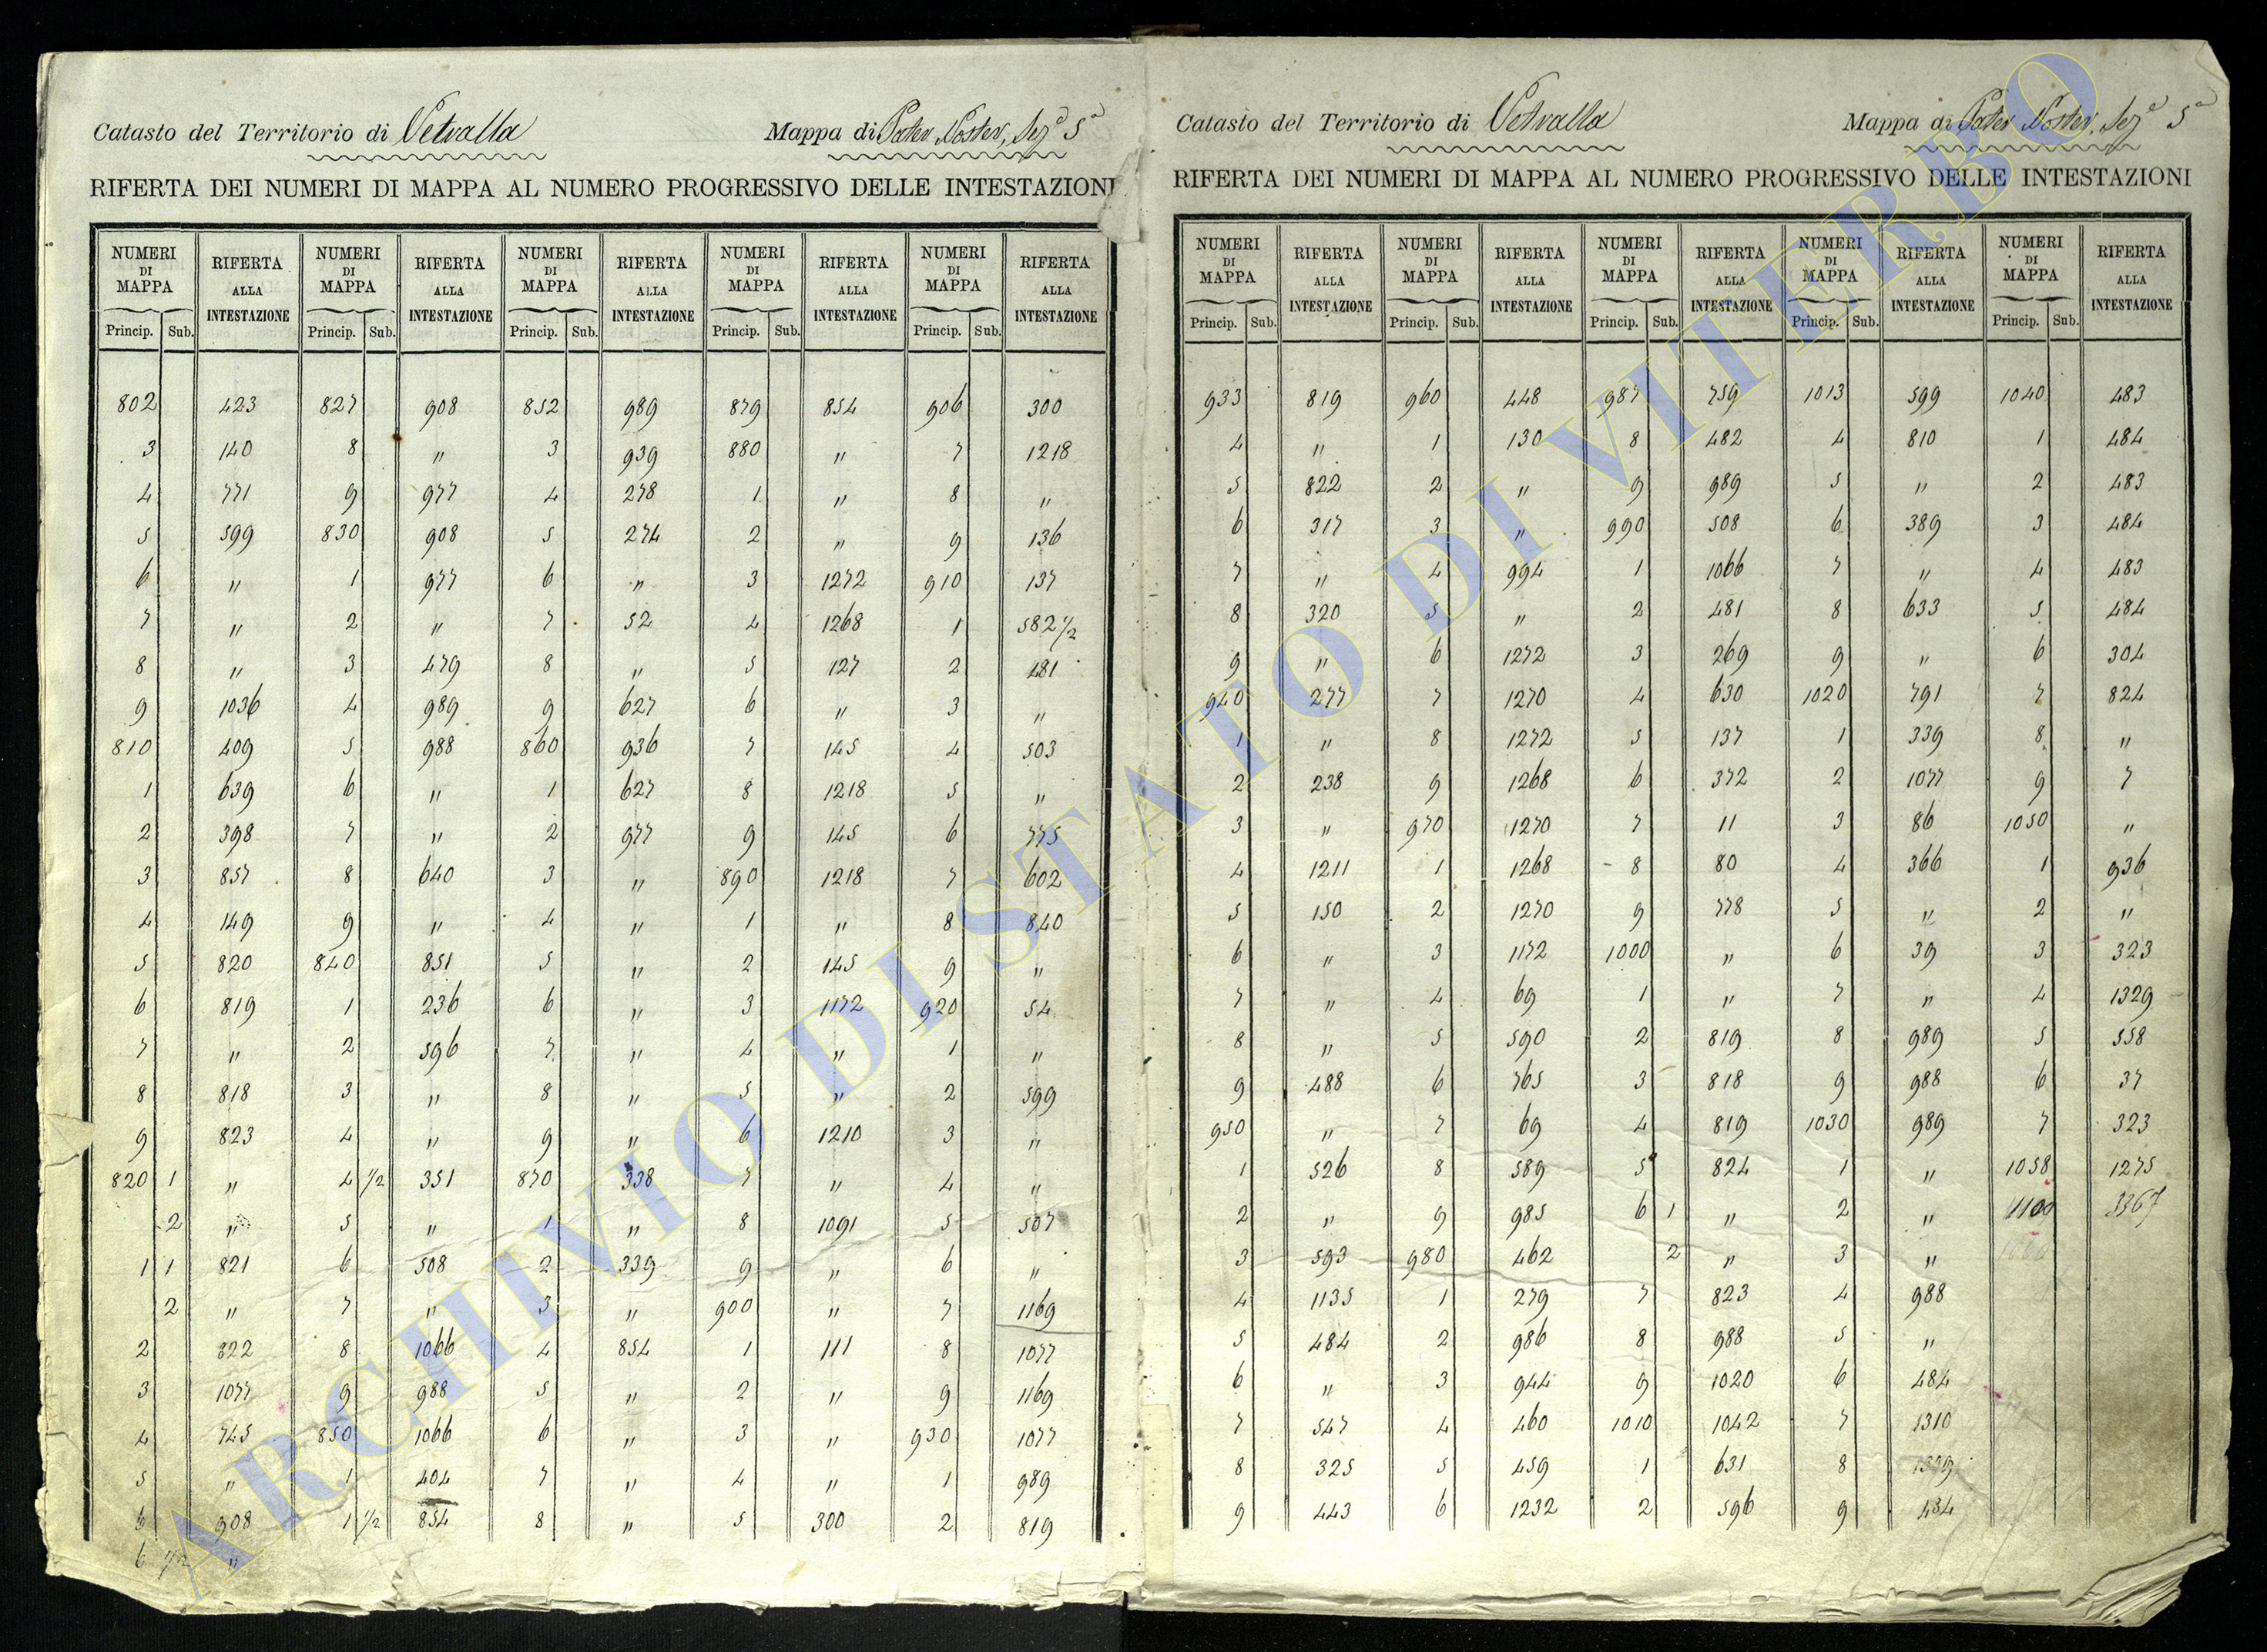 Catasto del Territorio di Vetralla Mappa di Pater Noster, Sez.e 5a
RIFERTA DEI NUMERI DI MAPPA AL NUMERO PROGRESSIVO DELLE INTESTAZIONI
NUMERI DI MAPPA RIFERTA ALLA INTESTAZIONE NUMERI DI MAPPA RIFERTA ALLA INTESTAZIONE NUMERI DI MAPPA RIFERTA ALLA INTESTAZIONE NUMERI DI MAPPA RIFERTA ALLA INTESTAZIONE NUMERI DI MAPPA RIFERTA ALLA INTESTAZIONE
Princip. Sub. Princip. Sub. Princip. Sub. Princip. Sub. Princip. Sub.
802 423 827 908 852 989 879 854 906 300
3 140 8 " 3 939 880 " 7 1218
4 771 9 977 4 278 1 " 8 "
5 599 830 908 5 274 2 " 9 136
6 " 1 977 6 " 3 1272 910 137
7 " 2 " 7 52 4 1268 1 582 1/2
8 " 3 479 8 " 5 127 2 481
9 1036 4 989 9 627 6 " 3 "
810 409 5 988 860 936 7 145 4 503
1 639 6 " 1 627 8 1218 5 "
2 398 7 " 2 977 9 145 6 775
3 857 8 640 3 " 890 1218 7 602
4 149 9 " 4 " 1 " 8 840
5 820 840 851 5 " 2 145 9 "
6 819 1 236 6 " 3 1172 920 54
7 " 2 596 7 " 4 " 1 "
8 818 3 " 8 " 5 " 2 599
9 823 4 " 9 " 6 1210 3 "
820 1 " 4 1/2 351 870 338 7 " 4 "
2 " 5 " 1 " 8 1091 5 507
1 1 821 6 508 2 339 9 " 6 "
2 " 7 " 3 " 900 " 7 1169
2 822 8 1066 4 854 1 111 8 1077
3 1077 9 988 5 " 2 " 9 1169
4 745 850 1066 6 " 3 " 930 1077
5 " 1 404 7 " 4 " 1 989
6 908 1 1/2 854 8 " 5 300 2 819
6 1/2 "
Catasto del Territorio di Vetralla Mappa di Pater Noster, Sez.e 5a
RIFERTA DEI NUMERI DI MAPPA AL NUMERO PROGRESSIVO DELLE INTESTAZIONI
NUMERI DI MAPPA RIFERTA ALLA INTESTAZIONE NUMERI DI MAPPA RIFERTA ALLA INTESTAZIONE NUMERI DI MAPPA RIFERTA ALLA INTESTAZIONE NUMERI DI MAPPA RIFERTA ALLA INTESTAZIONE NUMERI DI MAPPA RIFERTA ALLA INTESTAZIONE
Princip. Sub. Princip. Sub. Princip. Sub. Princip. Sub. Princip. Sub.
933 819 960 448 987 759 1013 599 1040 483
4 " 1 130 8 482 4 810 1 484
5 822 2 " 9 989 5 " 2 483
6 317 3 " 990 508 6 389 3 484
7 " 4 994 1 1066 7 " 4 483
8 320 5 " 2 481 8 633 5 484
9 " 6 1272 3 269 9 " 6 304
940 277 7 1270 4 630 1020 791 7 824
1 " 8 1272 5 137 1 339 8 "
2 238 9 1268 6 372 2 1077 9 7
3 " 970 1270 7 11 3 86 1050 "
4 1211 1 1268 8 80 4 366 1 936
5 150 2 1270 9 778 5 " 2 "
6 " 3 1172 1000 " 6 39 3 323
7 " 4 69 1 " 7 " 4 1329
8 " 5 590 2 819 8 989 5 558
9 488 6 765 3 818 9 988 6 37
950 " 7 69 4 819 1030 989 7 323
1 526 8 589 5 824 1 " 1058 1275
2 " 9 985 6 1 " 2 " 1100 3367
3 593 980 462 2 " 3 "
4 1135 1 279 7 823 4 988
5 484 2 986 8 988 5 "
6 " 3 944 9 1020 6 484
7 547 4 460 1010 1042 7 1310
8 325 5 459 1 631 8
9 443 6 1232 2 596 9 434
ARCHIVIO DI STATO DI VITERBO